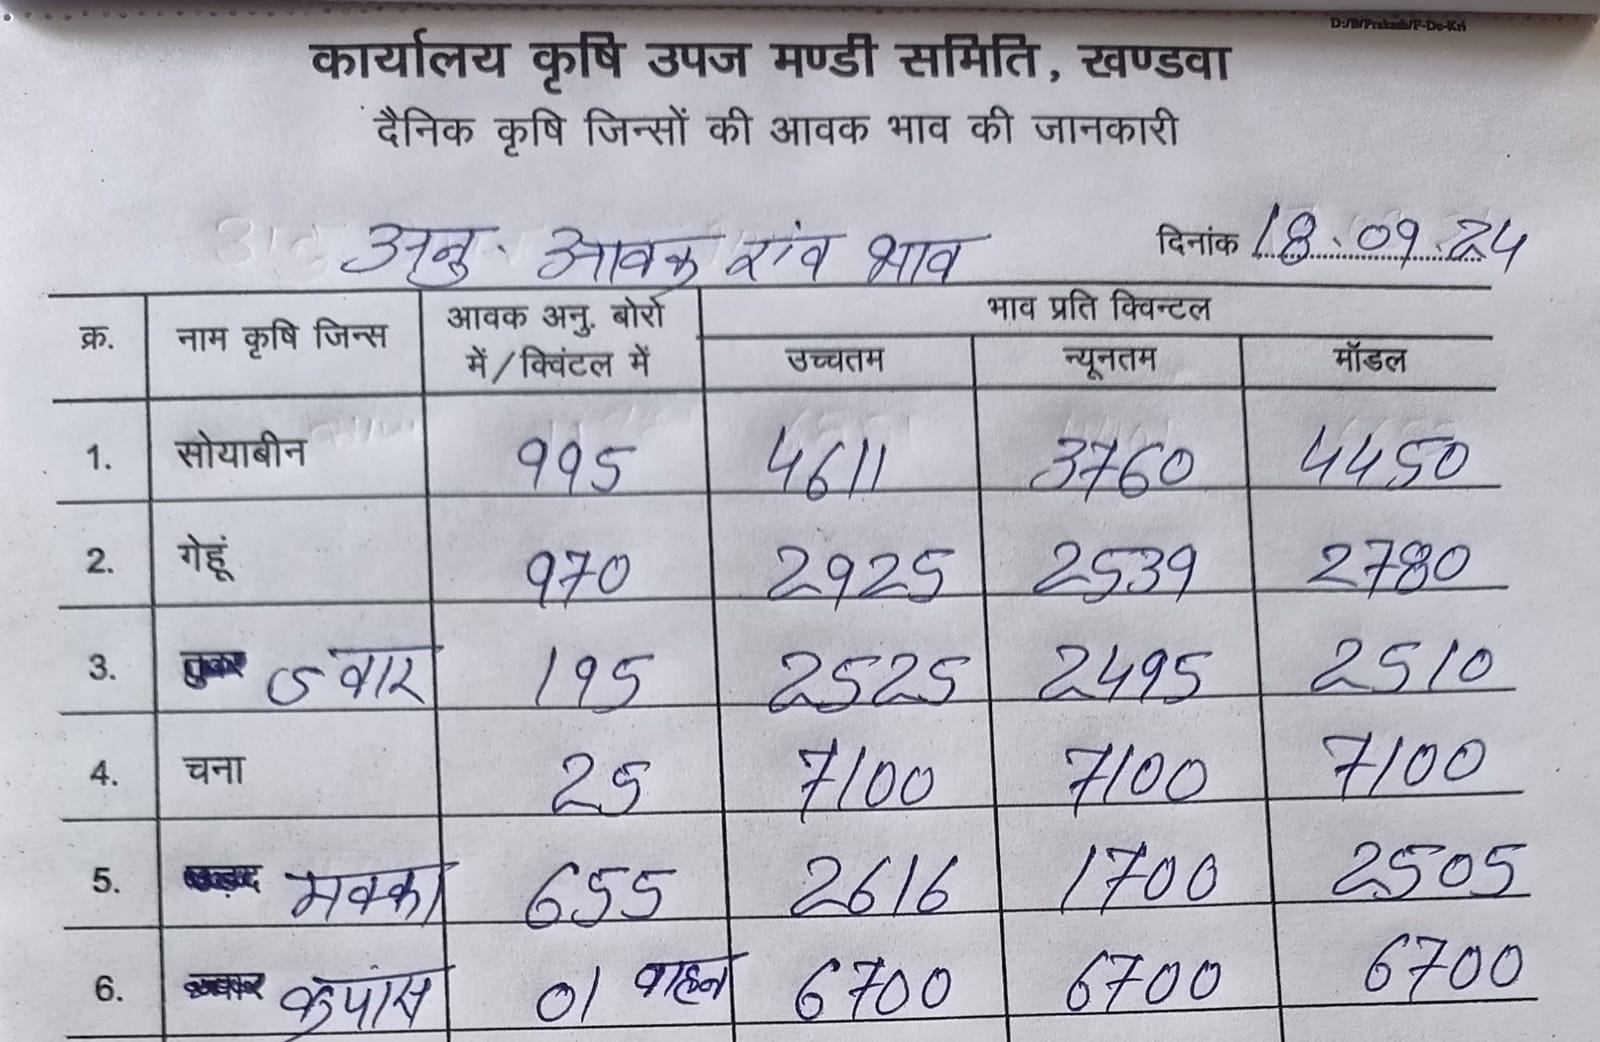 D:/B/Prakash/P-De-Kri
कार्यालय कृषि उपज मण्डी समिति, खण्डवा
दैनिक कृषि जिन्सों की आवक भाव की जानकारी
अनु. आवक एंव भाव दिनांक 18.09.24
क्र. नाम कृषि जिन्स आवक अनु. बोरो में/क्विंटल में भाव प्रति क्विन्टल
उच्चतम न्यूनतम मॉडल
1. सोयाबीन 995 4611 3760 4450
2. गेहूं 970 2925 2539 2780
3. ज्वार 195 2525 2495 2510
4. चना 25 7100 7100 7100
5. मक्का 655 2616 1700 2505
6. कपास 01 वाहन 6700 6700 6700